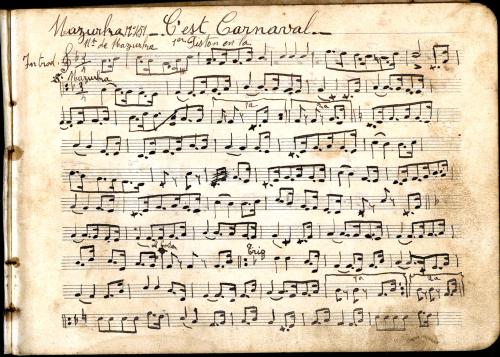 Mazurka Nº 151 - C'est Carnaval.-
Mt. de Mazurka 1er Piston en la
Introd.
Mazurka
1a 2a
Trio
1a 2a